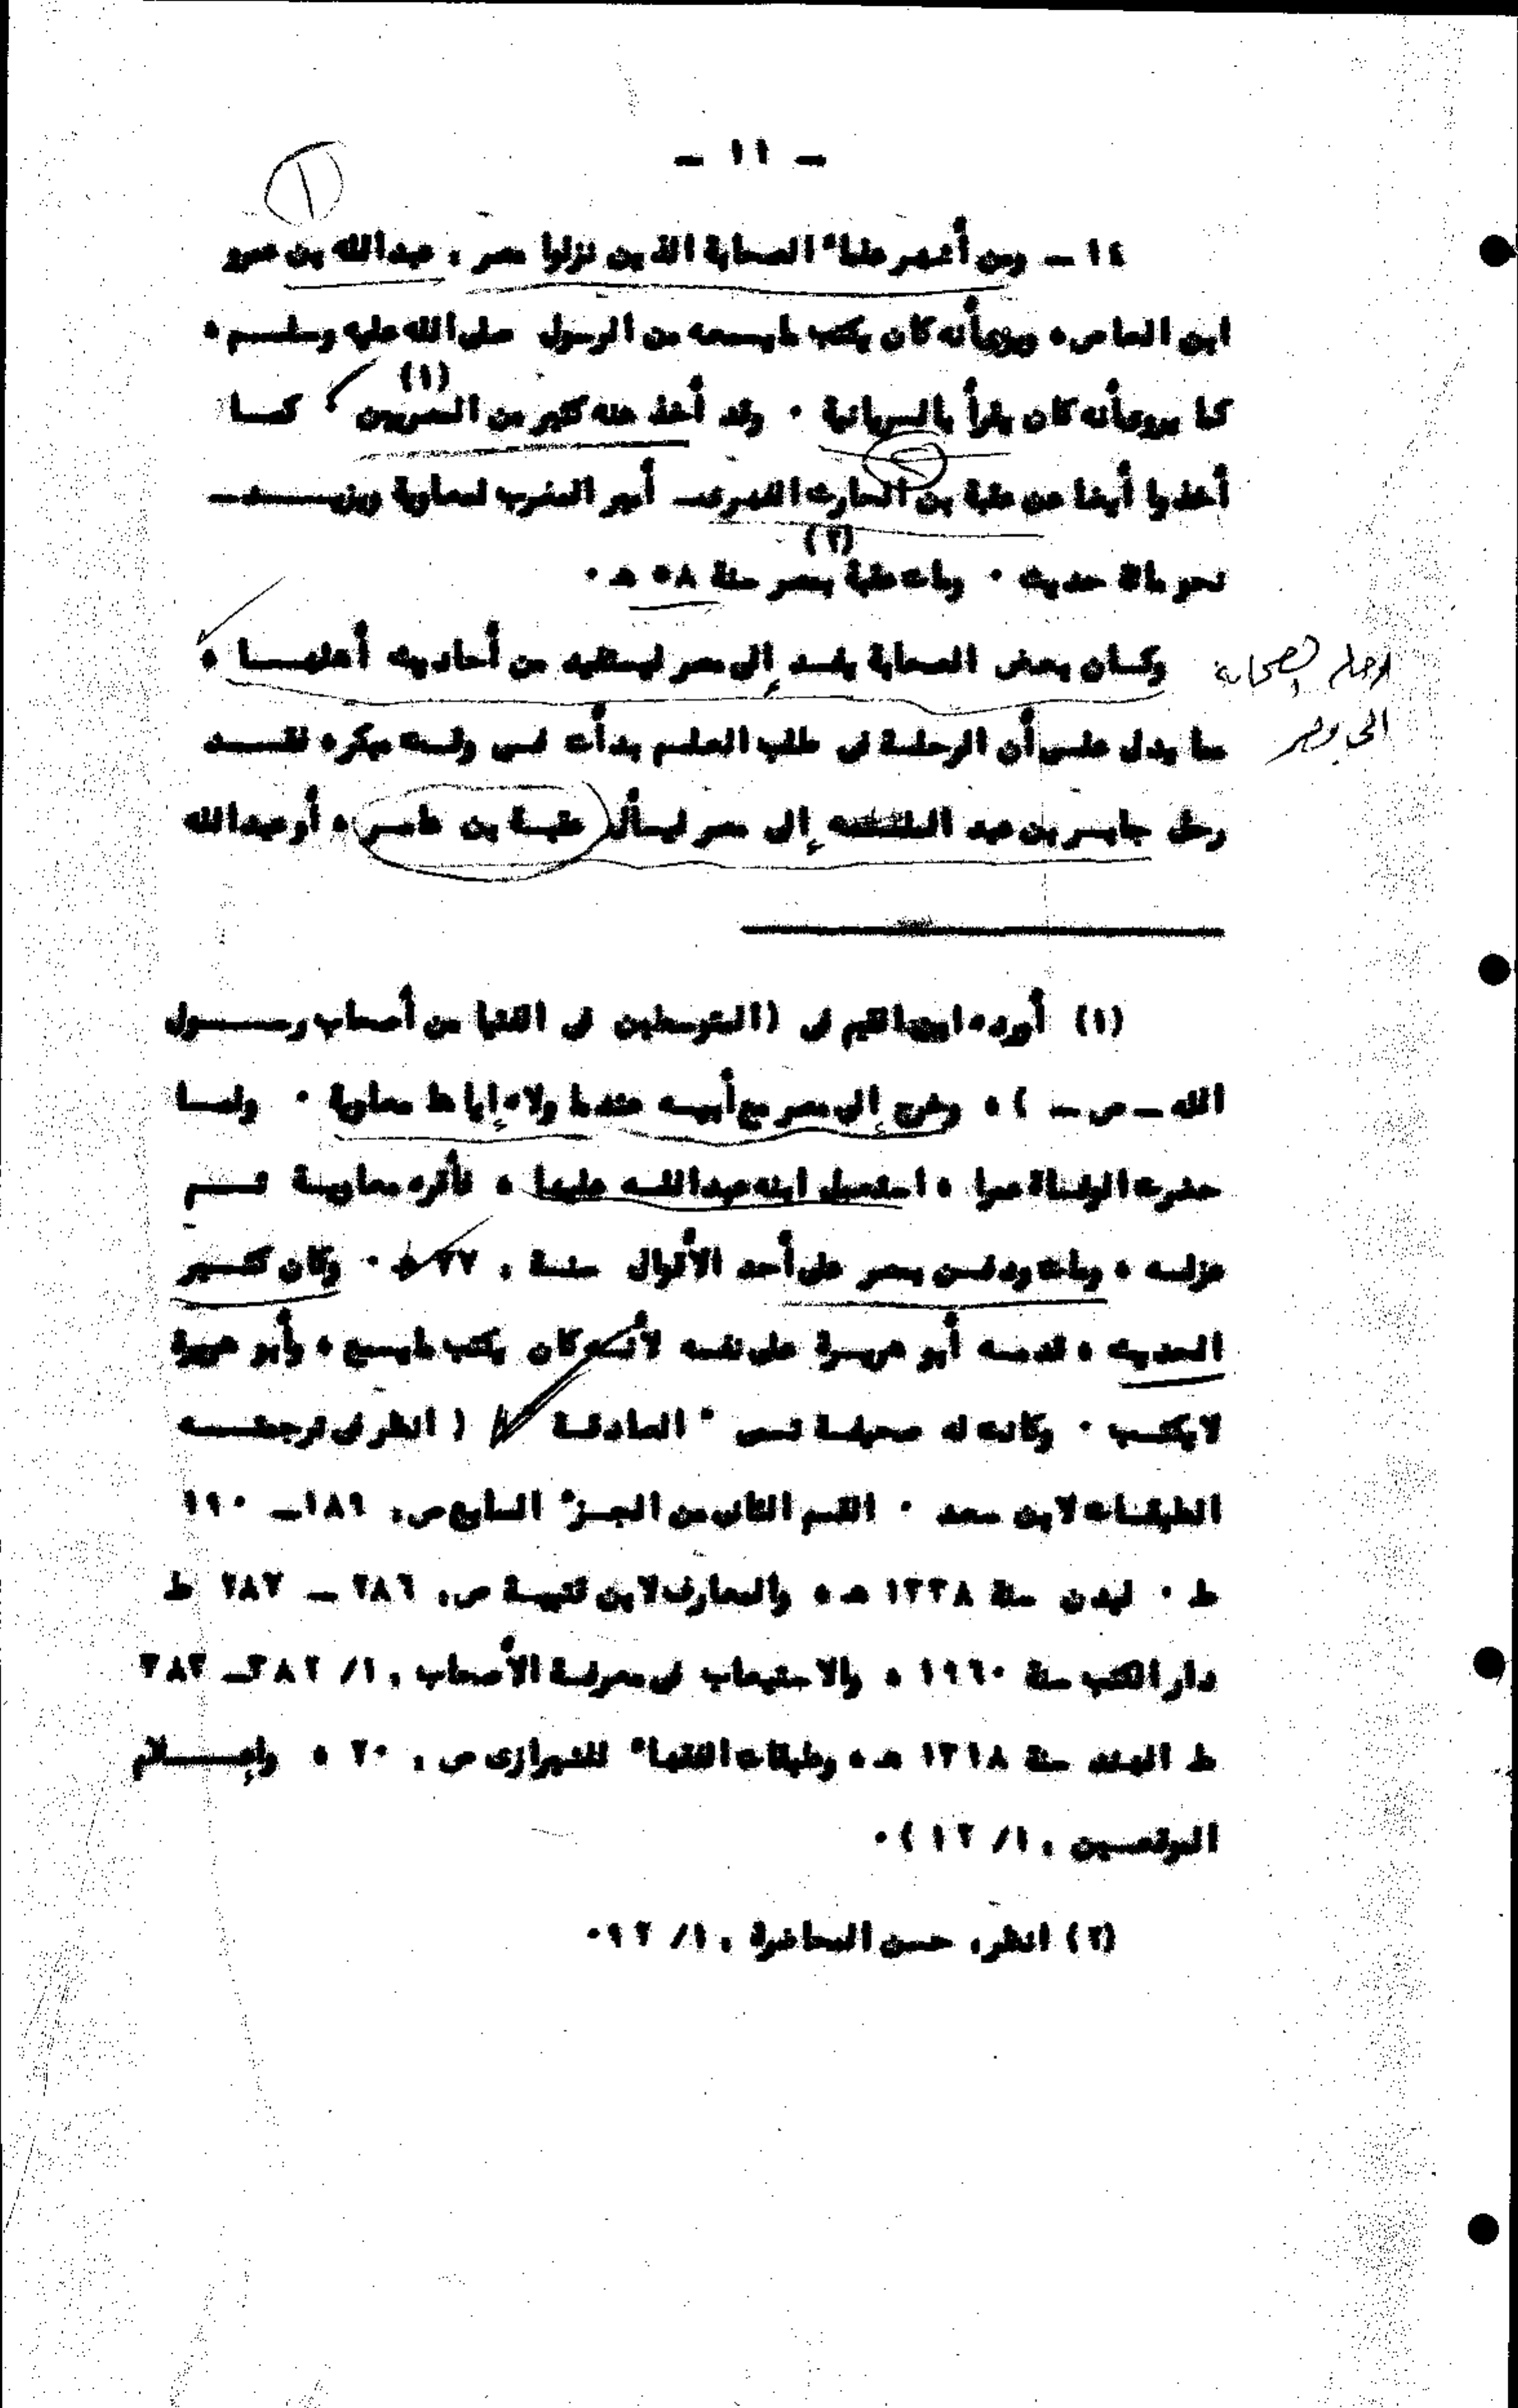 - ١١ -
١
١٤ - ومن أشهر علماء الصحابة الذين نزلوا مصر : عبدالله بن عمرو
ابن العاص ، ويروى أنه كان يكتب مايسمعه من الرسول صلى الله عليه وسلم ،
كما يروى أنه كان يقرأ بالسريانية . وقد أخذ عنه كثير من المصريين (١) ، كما
أخذوا أيضا عن عقبة بن الحارث الفهرى - أمير المغرب لمعاوية ويزيد -
نحو مائة حديث . ومات عقبة بمصر (٢) سنة ٥٨ هـ .
وكان بعض الصحابة يفد إلى مصر ليستفيد من أحاديث أهلها ،
الصحابة
الى مصر
مما يدل على أن الرحلة فى طلب العلم بدأت فى وقت مبكر ، فقد
رحل جابر بن عبد الله إلى مصر ليسأل عقبة بن عامر ، أو عبدالله
(١) أورده ابن القيم فى (المتوسطين فى الفتيا من أصحاب رسول
الله - ص - ) ، وخرج إلى مصر مع أبيه عندما ولاه إياها معاوية . ولما
حضرت الوفاة عمرا ، استعمل ابنه عبدالله عليها ، فأقره معاوية ثم
عزله ، ومات ودفن بمصر على أحد الأقوال سنة : ٧٧ هـ . وكان كثير
الحديث ، قدمه أبو هريرة على نفسه لأنه كان يكتب مايسمع ، وأبو هريرة
لايكتب . وكانت له صحيفة تسمى " الصادقة " ( انظر فى ترجمته
الطبقات لابن سعد . القسم الثانى من الجزء السابع ص : ١٨٩ - ١٩٠
ط . ليدن سنة ١٣٣٨ هـ ، والمعارف لابن قتيبة ص : ٢٨٦ - ٢٨٧ ط
دار الكتب سنة ١٩٦٠ ، والاستيعاب فى معرفة الأصحاب : ١/ ٣٨٢ - ٣٨٣
ط الهند سنة ١٣١٨ هـ ، وطبقات الفقهاء للشيرازى ص : ٢٠ ، وإعلام
الموقعين : ١/ ١٢ ) .
(٢) انظر: حسن المحاضرة : ١/ ٩٢ .